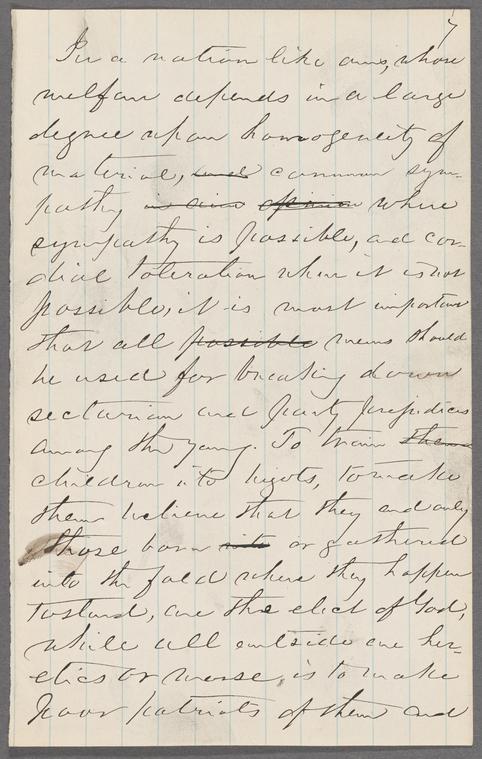 7
In a nation like ours, whose
welfare depends in a large
degree upon homogeneity of
material, and common sym-
pathy in aims opinion where
sympathy is possible, and cor-
dial toleration when it is not
possible, it is most important
that all possible means should
be used for breaking down
sectarian and party prejudices
among the young. To train them
children into bigots, to make
them believe that they and only
those born into or gathered
into the fold where they happen
to stand, are the elect of God,
while all outside are her-
etics or worse, is to make
poor patriots of them and